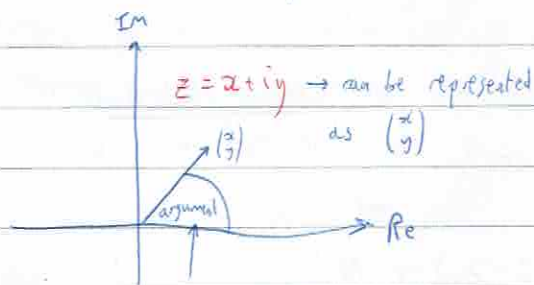 Im
z = x + iy → can be represented
as (x y)
(x y)
argument
Re